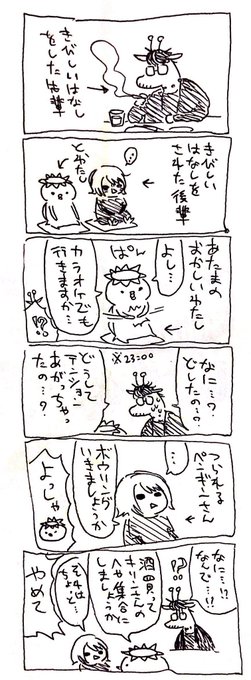 きびしいはなし
をした先輩
きびしい
はなしを
された後輩
…
とわたし
あたまの
おかしいわたし
よし…
ぱん
カラオケでも
行きますか…
!?
※23:00
なに…?
どしたの…?
どうして
テンション
あがっちゃっ
たの…?
つかれてる
ペンギンさん
…
ボウリング
いきましょうか
よっしゃ
なに…!?
なんで…!?
!?
酒買って
キリンさんの
へや集合に
しましょうか
それは
ちょっと…
やめて